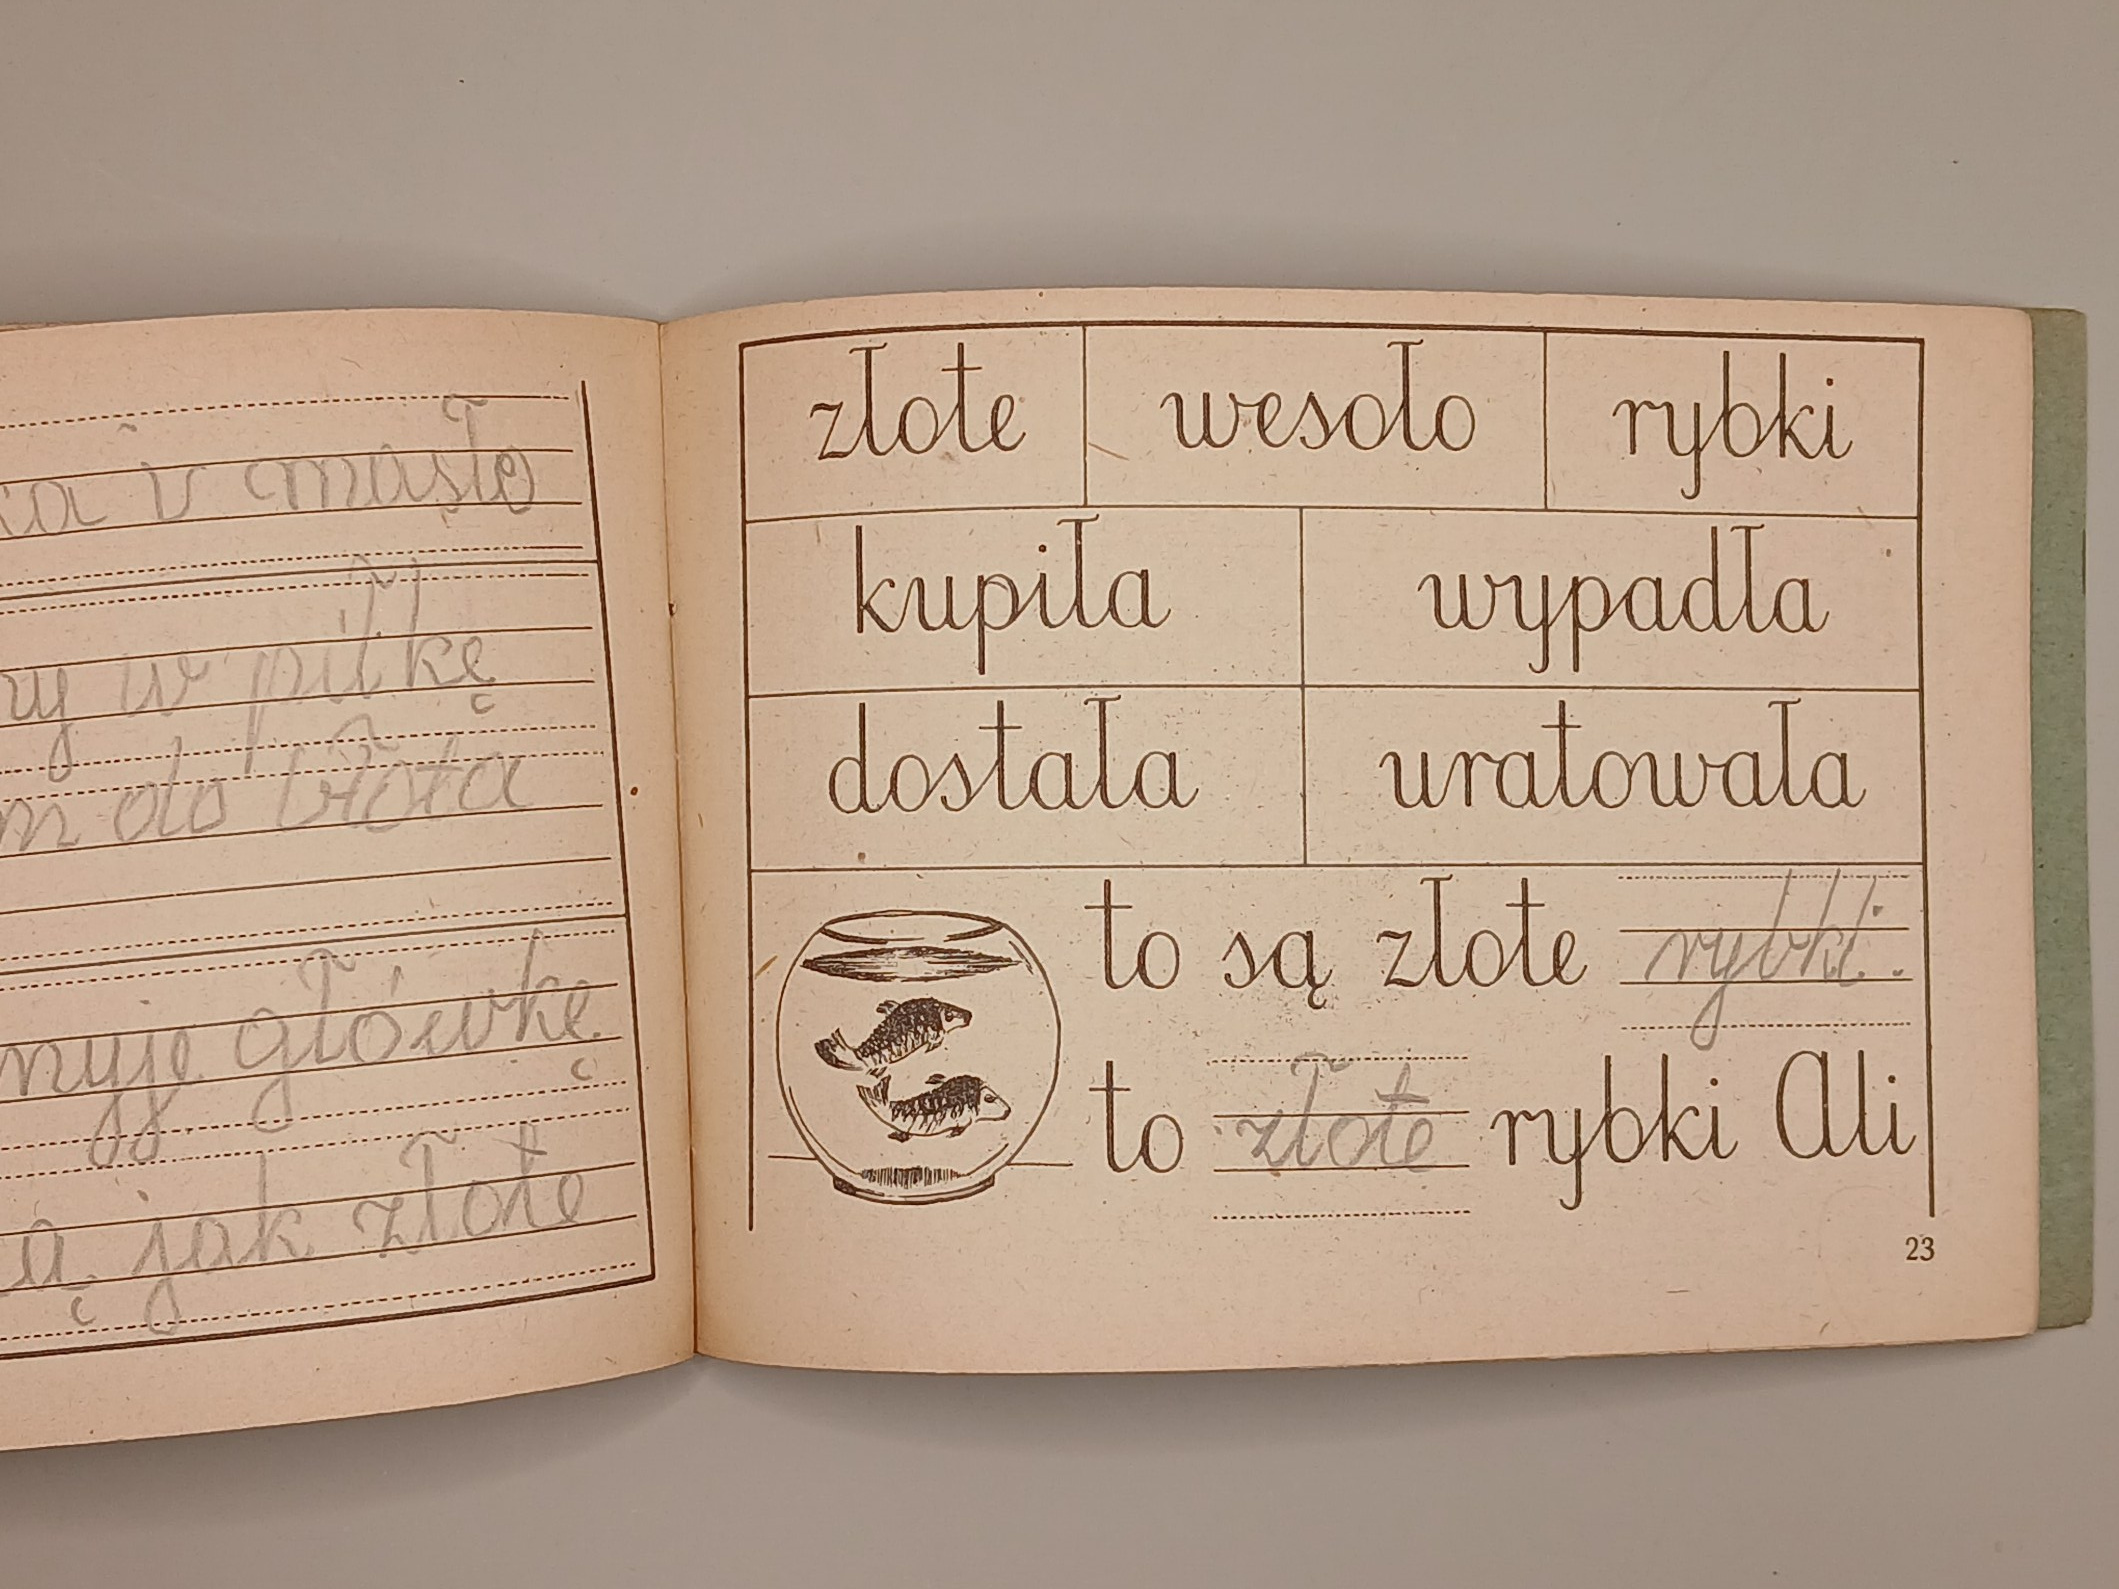 i masło
w piłkę
do błota
główkę
jak złote
złote wesoło rybki
kupiła wypadła
dostała uratowała
to są złote rybki.
to złote rybki Ali
23